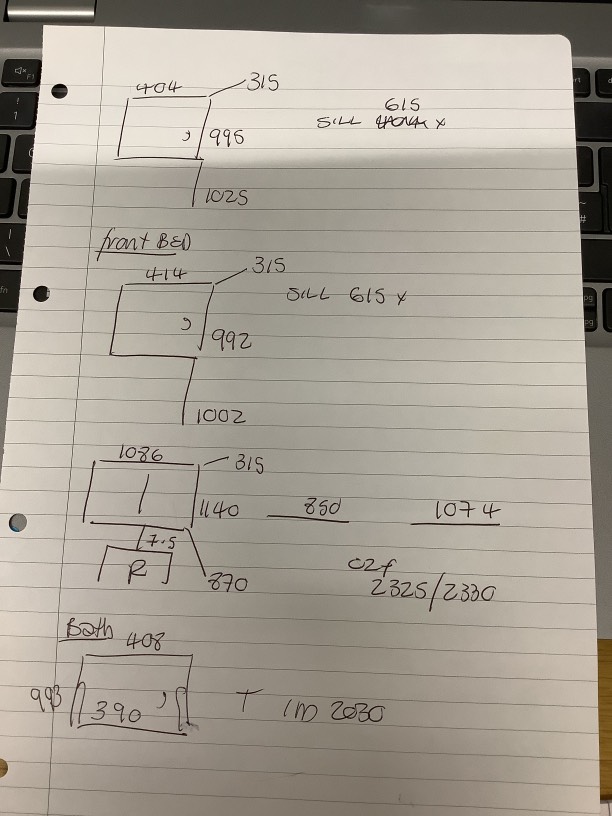 404 315
615
SILL x
995
1025
front BED
414 315
SILL 615 x
992
1002
1086 315
1140 850 1074
7.5
R 870
2325/2330
Bath 408
993 390 2030